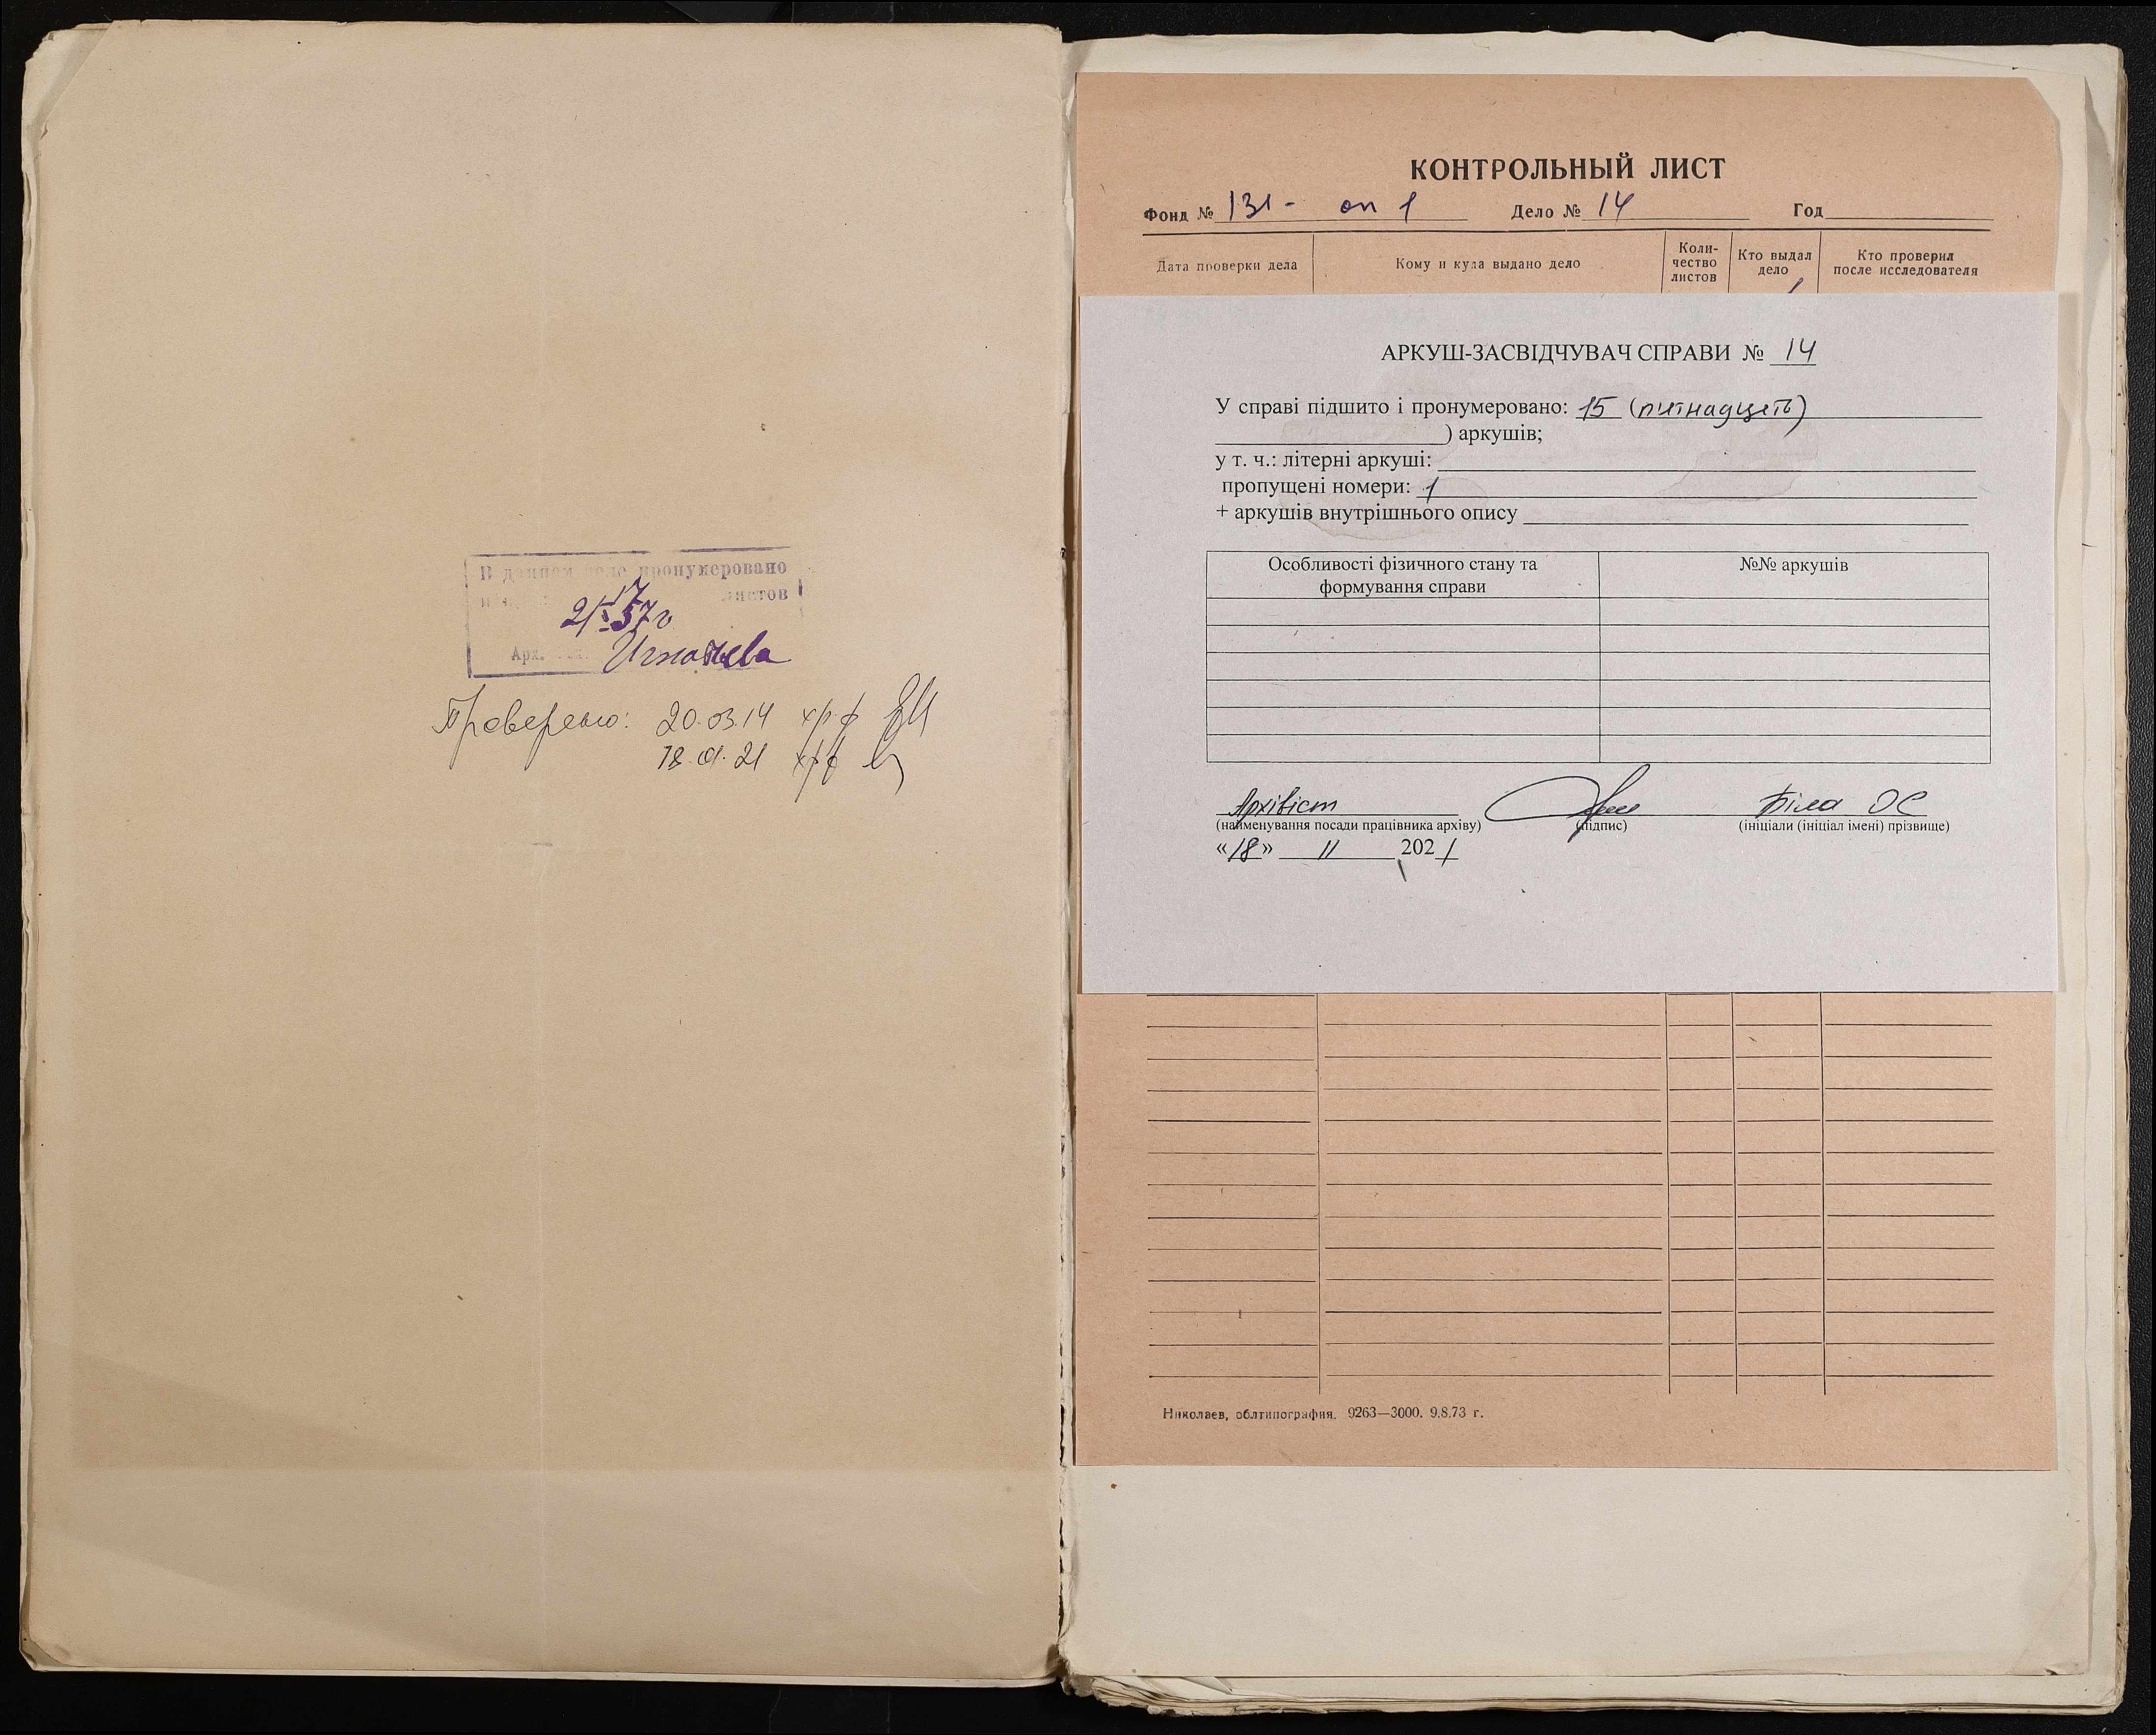 В данном деле пронумеровано
17 листов
21 57 г
Арх. Игнатьева
Проверено: 20.03.14 хрф
18.01.21 хрф
КОНТРОЛЬНЫЙ ЛИСТ
Фонд № 131 - оп 1 Дело № 14 Год
Дата проверки дела Кому и куда выдано дело Количество листов Кто выдал дело Кто проверил после исследователя
АРКУШ-ЗАСВІДЧУВАЧ СПРАВИ № 14
У справі підшито і пронумеровано: 15 (п'ятнадцять)
) аркушів;
у т. ч.: літерні аркуші:
пропущені номери: 1
+ аркушів внутрішнього опису
Особливості фізичного стану та №№ аркушів
формування справи
Архівіст Біла ОС
(найменування посади працівника архіву) (підпис) (ініціали (ініціал імені) прізвище)
«18» 11 2021
Николаев, облтипография. 9263—3000. 9.8.73 г.